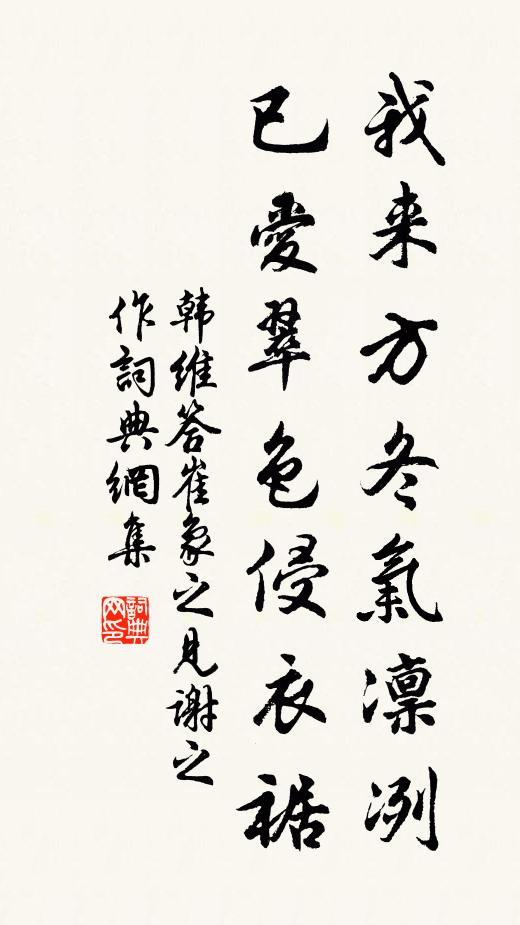 我来方冬氣凛冽
已愛翠色侵衣裾
韩維答崔象之見謝之
作詞典網集
詞典网印